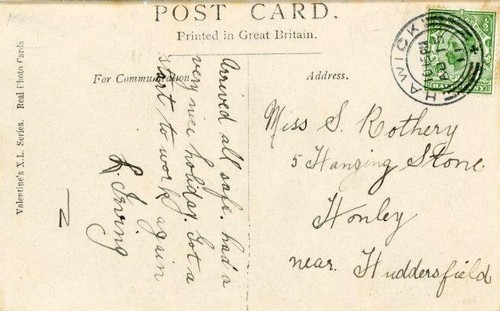 POST CARD.
Printed in Great Britain.
For Communication.
Address.
Valentine's X.L. Series. Real Photo Cards
Arrived all safe. had a
very nice holiday. Got a
start to work again
R. Irving
Miss S. Rothery
5 Hanging Stone
Honley
near. Huddersfield
HAWICK